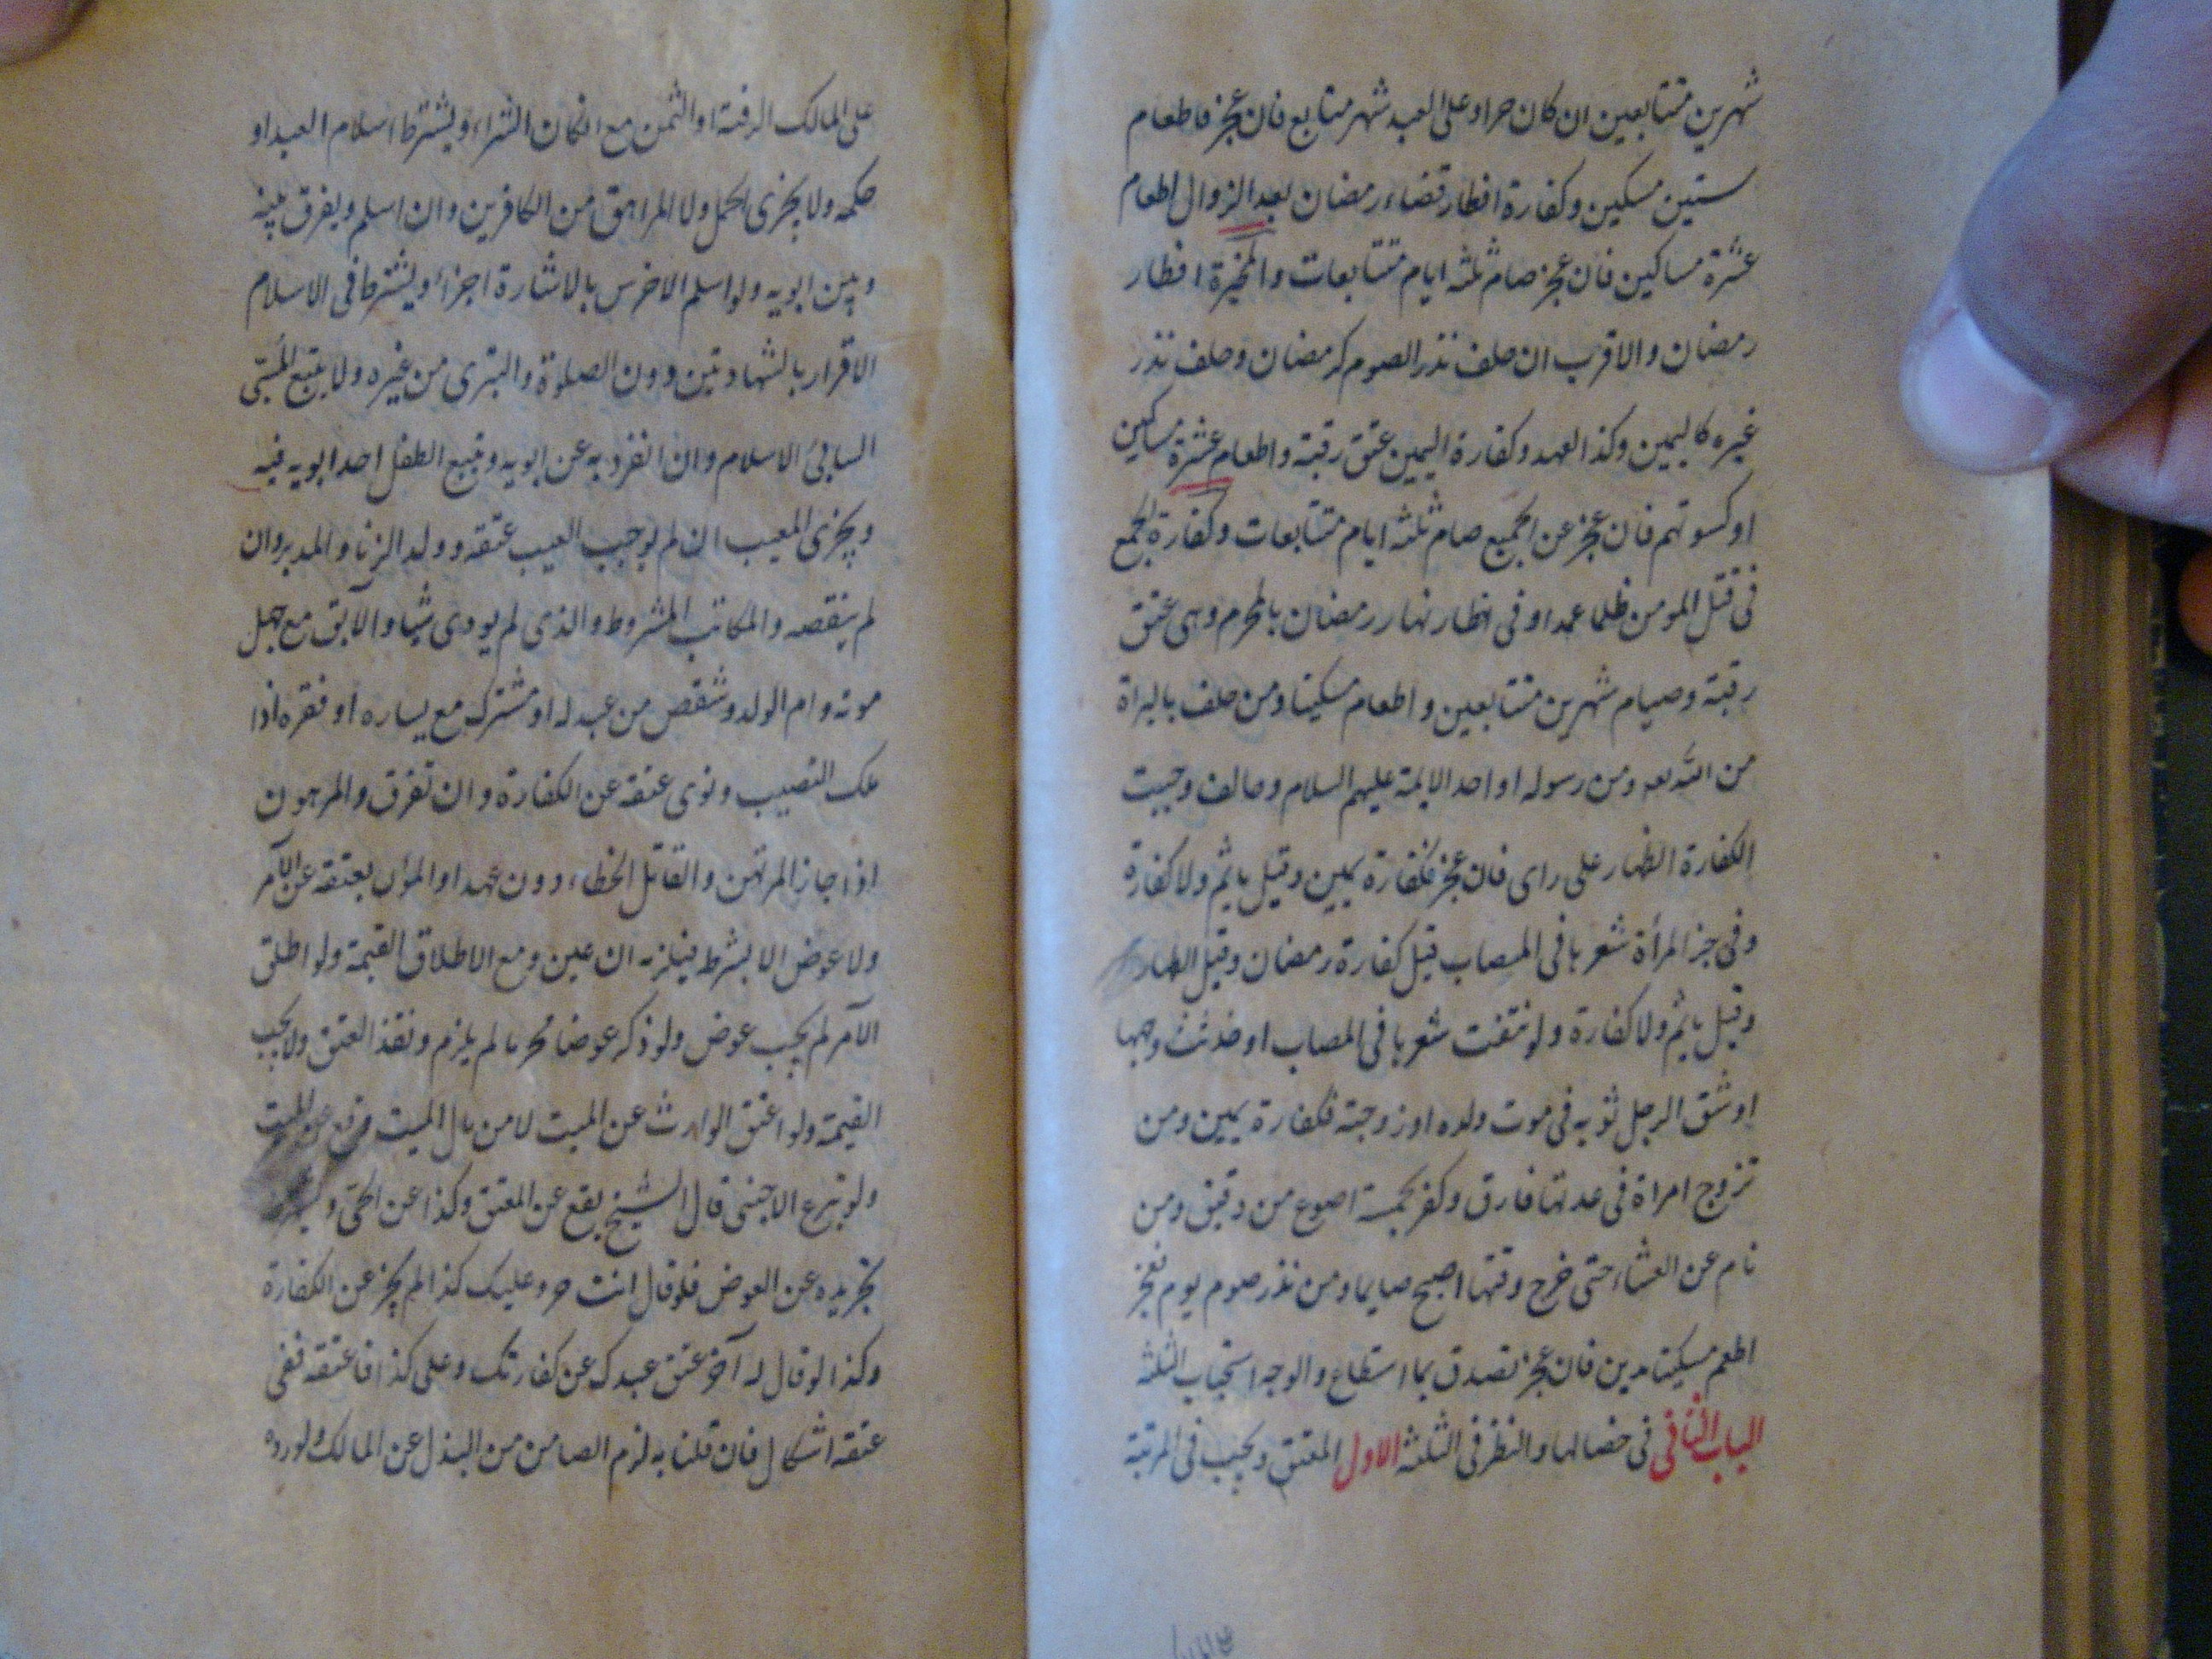 شهرين متتابعين ان كان حرا وعلى العبد شهر متتابع فان عجز فاطعام
ستين مسكين وكفارة افطار قضاء رمضان بعد الزوال اطعام
عشرة مساكين فان عجز صام ثلثه ايام متتابعات والمخيرة افطار
رمضان والاقرب ان حلف نذر الصوم كرمضان وحلف نذر
غيره كاليمين وكذا العهد وكفارة اليمين عتق رقبة واطعام عشرة مساكين
او كسوتهم فان عجز عن الجميع صام ثلثه ايام متتابعات وكفارة الجمع
فى قتل المومن ظلما عمدا وفى افطار نهار رمضان بالمحرم وهى عتق
رقبة وصيام شهرين متتابعين واطعام مسكينا ومن حلف بالبراة
من الله تعه ومن رسوله او احد الايمة عليهم السلام وخالف وجبت
الكفارة الظهار على راى فان عجز فكفارة يمين وقيل ياثم ولا كفارة
وفى جز المرأة شعرها فى المصاب قيل كفارة رمضان وقيل الظهار
وقيل ياثم ولا كفارة ولو نتفت شعرها فى المصاب او خدشت وجهها
او شق الرجل ثوبه فى موت ولده او زوجته فكفارة يمين ومن
تزوج امراة فى عدتها فارق وكفر بخمسة اصوع من دقيق ومن
نام عن العشاء حتى خرج وقتها اصبح صايما ومن نذر صوم يوم فعجز
اطعم مسكينا مدين فان عجز تصدق بما استطاع والوجه استحباب الثلثه
الباب الثانى فى خصالها والنظر فى الثلثه الاول المعتق ويجب فى المرتبة
على المالك الرقبة او الثمن مع امكان الشراء ويشترط اسلام العبد او
حكمه ولا يجزى الحمل ولا المراهق من الكافرين وان اسلم ويفرق بينه
وبين ابويه ولو اسلم الاخرس بالاشارة اجزأ ويشترط فى الاسلام
الاقرار بالشهادتين دون الصلوة والتبرى من غيره ولا يتبع المسبى
السابى الاسلام وان انفرد به عن ابويه ويتبع الطفل احد ابويه فيه
ويجزى المعيب ان لم يوجب العيب عتقه وولد الزنا والمدبر وان
لم ينقصه والمكاتب المشروط والذى لم يودى شيا والآبق مع جهل
موته وام الولد وشقص من عبد له او مشترك مع يساره او فقره اذا
ملك النصيب ونوى عتقه عن الكفارة وان تفرق والمرهون
اذا جاز المرتهن والقاتل الخطاء دون عمدا والمؤن بعتقه عن الآمر
ولا عوض الا بشرط فيلزمه ان عين ومع الاطلاق القيمة ولو اطلق
الآمر لم يجب عوض ولو ذكر عوضا محرما لم يلزم ونفذ العتق ولا يجب
القيمة ولو اعتق الوارث عن الميت لا من مال الميت وقع عن الميت
ولو تبرع الاجنبى قال الشيخ يقع عن المعتق وكذا عن الحى
تجريده عن العوض فلو قال انت حر وعليك كذا لم يجز عن الكفارة
وكذا لو قال له آخر عتق عبدك عن كفارتك وعلى كذا فاعتقه ففى
عتقه اشكال فان قلنا به لزم الضامن من البذل عن المالك ولو رده